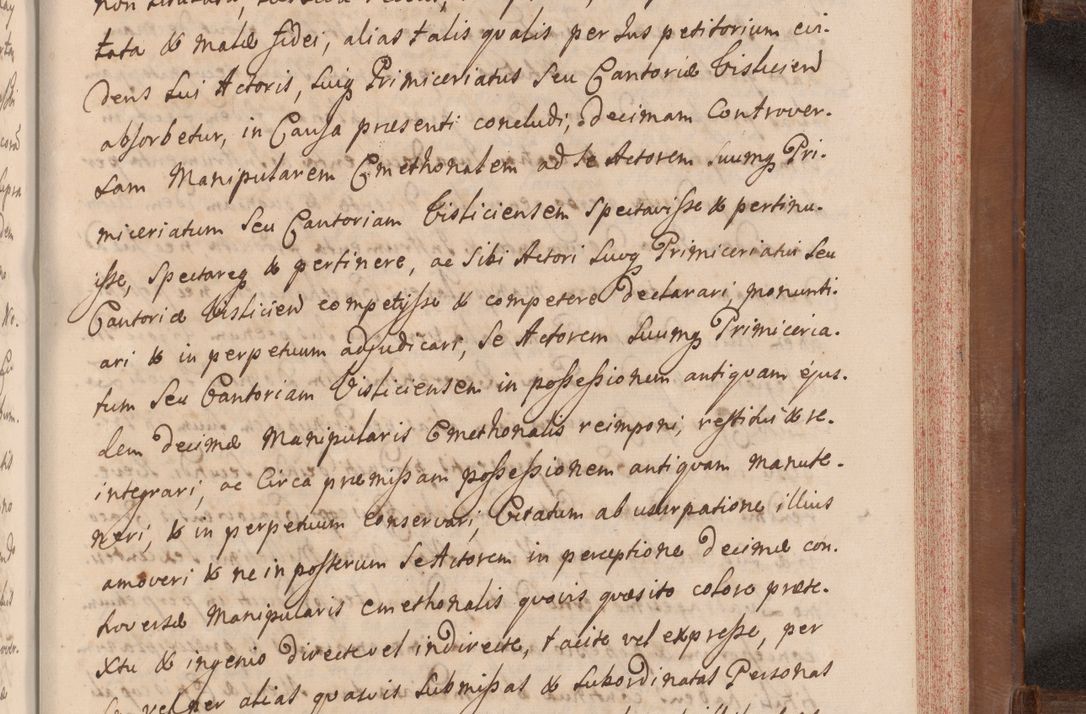 tata & malæ fidei, alias talis qvalis per Ius petitorium evi-
dens sui Actoris, suiq Primiceriatus seu Cantoriæ Visliciens
absorbetur, in Causa præsenti concludi, decimam Controver-
sam Manipularem Cmethonalem ad se Actorem suumq Pri-
miceriatum seu Cantoriam Visliciensem spectavisse & pertinu-
isse, spectareq & pertinere, ac sibi Actori suoq Primiceriatui seu
Cantoriæ Visliciens competysse & competere declarari, pronunti-
ari & in perpetuum adjudicari, se Actorem suumq Primiceria-
tum seu Cantoriam Visliciensem in possessionem antiqvam ejus-
dem decimæ Manipularis Cmethonalis reimponi, restitui & re-
integrari, ac Circa præmissam possessionem antiqvam manute-
neri, & in perpetuum conservari, Citatum ab usurpatione illius
amoveri & ne in posterum se Actorem in perceptione decimæ con-
troversæ Manipularis cmethonalis qvovis qvæsito colore præte-
xtu & ingenio directe vel indirecte, tacite vel expresse, per
se vel per alias qvasvis submissas & subordinatas Personas